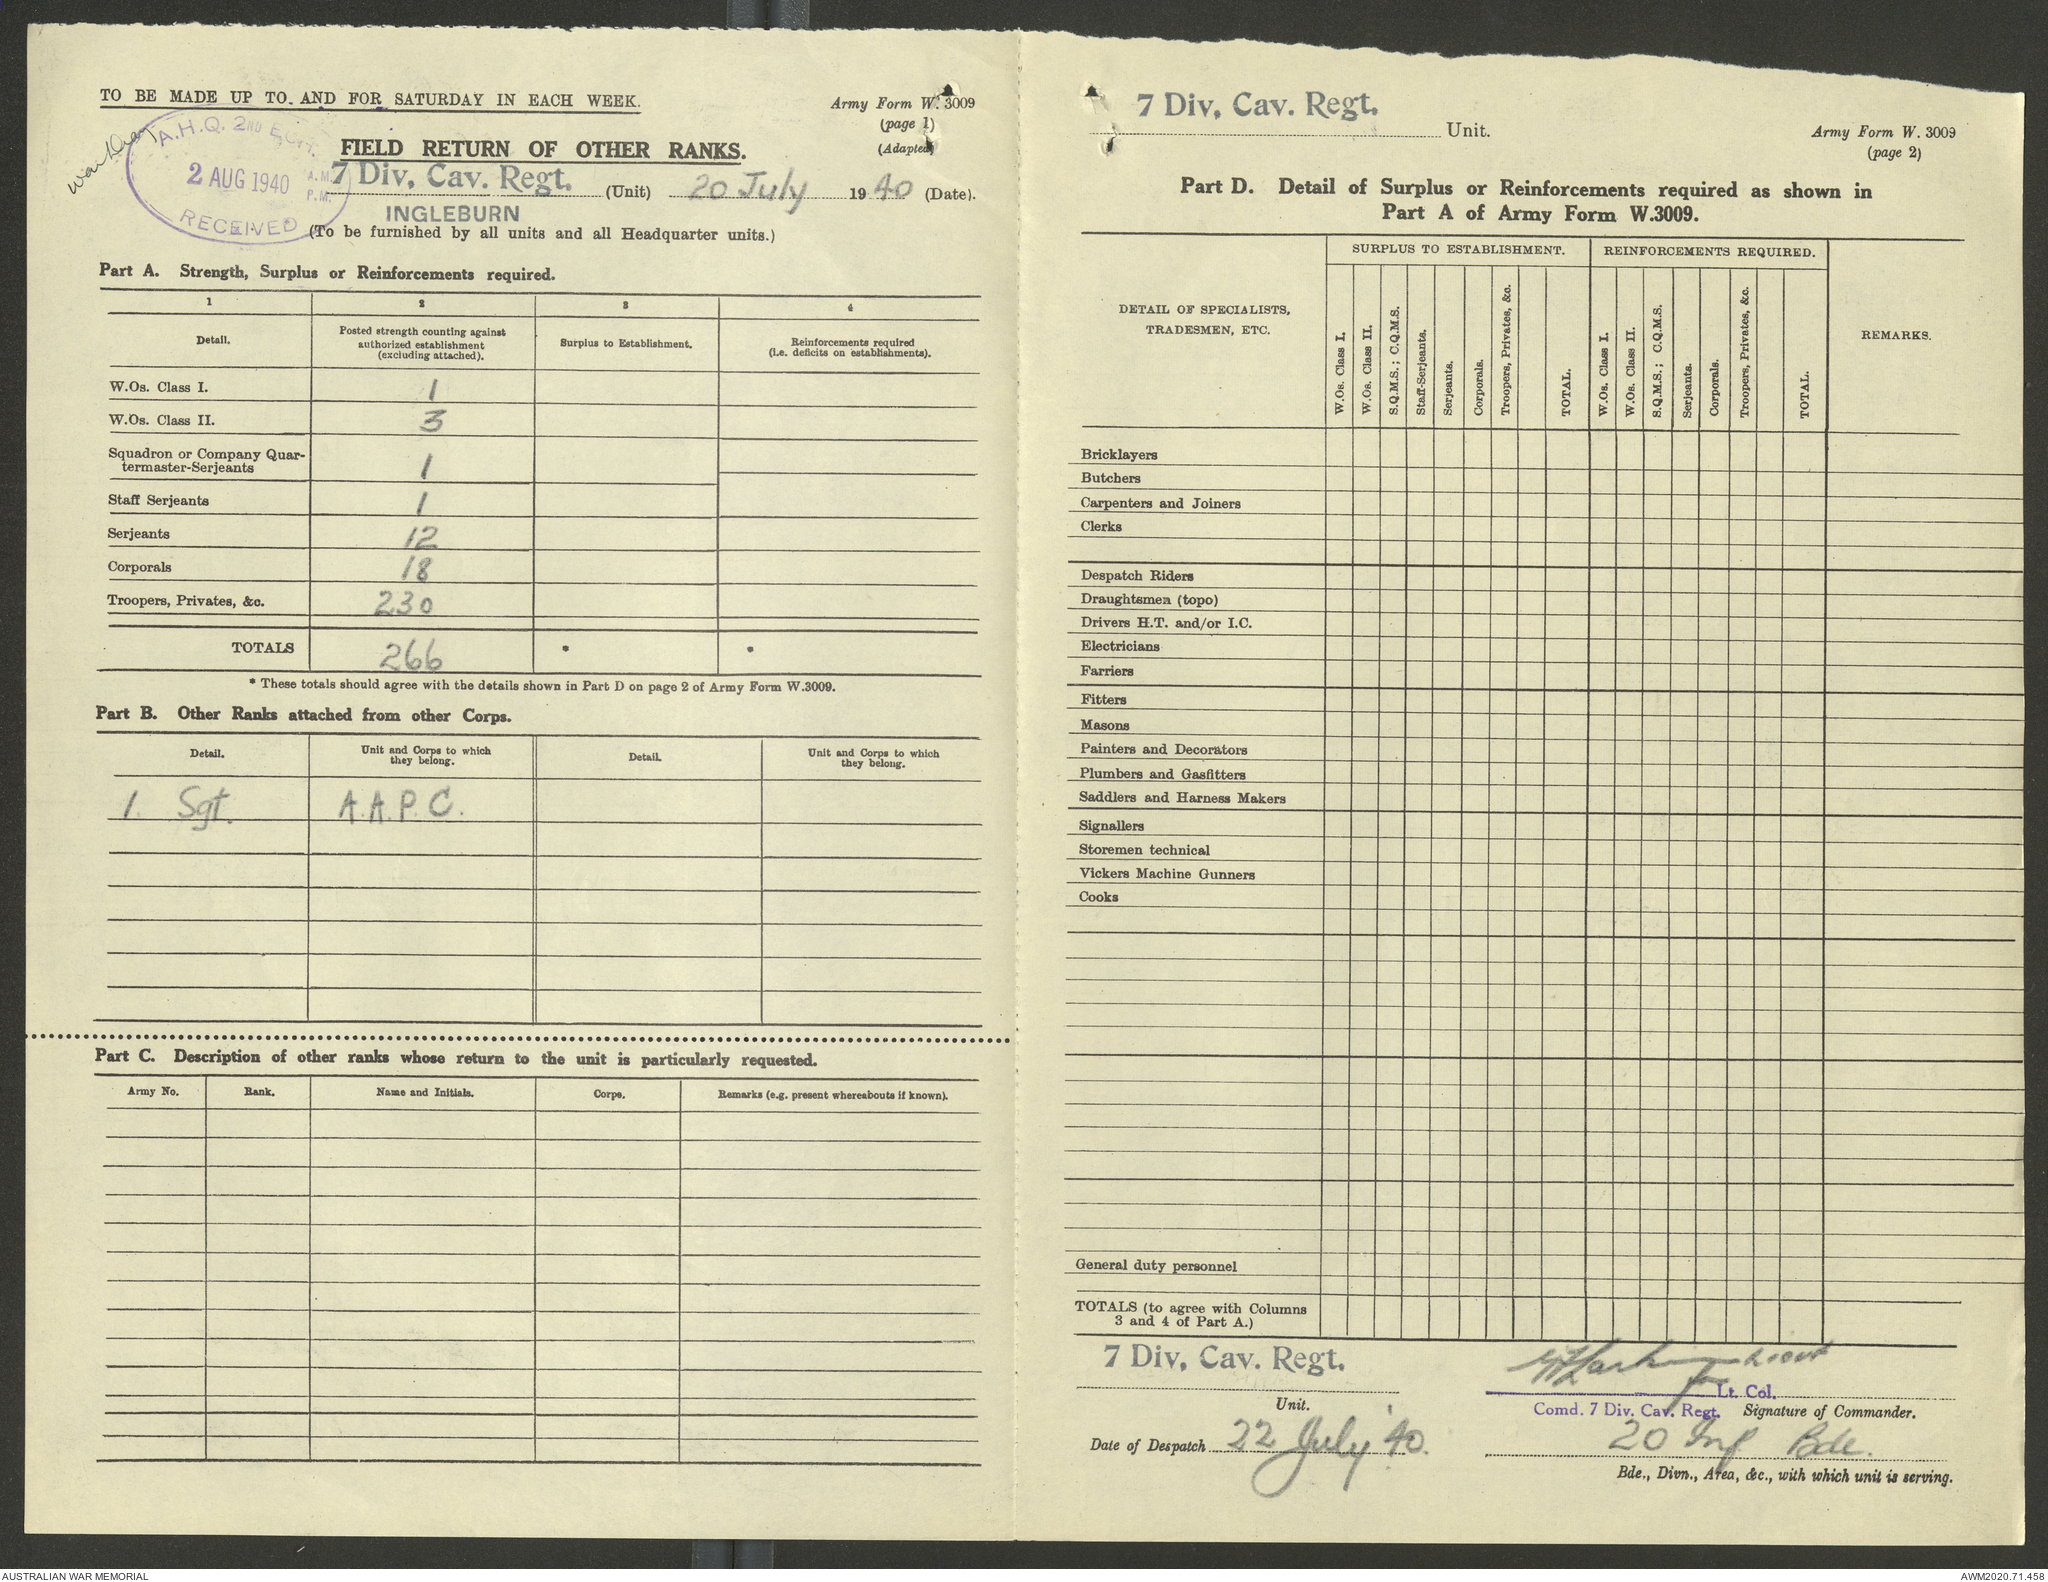 TO BE MADE UP TO AND FOR SATURDAY IN EACH WEEK.
Army Form W. 3009
(page 1)
(Adapted)
War Diary
A.H.Q. 2ND ECH.
2 AUG 1940 A.M. P.M.
RECEIVED
FIELD RETURN OF OTHER RANKS.
7 Div, Cav. Regt. (Unit) 20 July 1940 (Date).
INGLEBURN
(To be furnished by all units and all Headquarter units.)
Part A. Strength, Surplus or Reinforcements required.
1 2 3 4
Detail.
Posted strength counting against
authorized establishment
(excluding attached).
Surplus to Establishment.
Reinforcements required
(i.e. deficits on establishments).
W.Os. Class I. 1
W.Os. Class II. 3
Squadron or Company Quar-
termaster-Serjeants 1
Staff Serjeants 1
Serjeants 12
Corporals 18
Troopers, Privates, &c. 230
TOTALS 266 * *
* These totals should agree with the details shown in Part D on page 2 of Army Form W.3009.
Part B. Other Ranks attached from other Corps.
Detail.
Unit and Corps to which
they belong.
Detail.
Unit and Corps to which
they belong.
1. Sgt. A.A.P.C.
Part C. Description of other ranks whose return to the unit is particularly requested.
Army No. Rank. Name and Initials. Corps. Remarks (e.g. present whereabouts if known).
7 Div, Cav. Regt.
Unit.
Army Form W. 3009
(page 2)
Part D. Detail of Surplus or Reinforcements required as shown in
Part A of Army Form W.3009.
DETAIL OF SPECIALISTS,
TRADESMEN, ETC.
SURPLUS TO ESTABLISHMENT.
W.Os. Class I.
W.Os. Class II.
S.Q.M.S.; C.Q.M.S.
Staff-Serjeants.
Serjeants.
Corporals.
Troopers, Privates, &c.
TOTAL.
REINFORCEMENTS REQUIRED.
W.Os. Class I.
W.Os. Class II.
S.Q.M.S.; C.Q.M.S.
Serjeants.
Corporals.
Troopers, Privates, &c.
TOTAL.
REMARKS.
Bricklayers
Butchers
Carpenters and Joiners
Clerks
Despatch Riders
Draughtsmen (topo)
Drivers H.T. and/or I.C.
Electricians
Farriers
Fitters
Masons
Painters and Decorators
Plumbers and Gasfitters
Saddlers and Harness Makers
Signallers
Storemen technical
Vickers Machine Gunners
Cooks
General duty personnel
TOTALS (to agree with Columns
3 and 4 of Part A.)
7 Div, Cav. Regt.
Unit.
Date of Despatch 22 July '40.
Lieut
for Lt. Col.
Comd. 7 Div. Cav. Regt. Signature of Commander.
20 Inf Bde.
Bde., Divn., Area, &c., with which unit is serving.
AUSTRALIAN WAR MEMORIAL
AWM2020.71.458